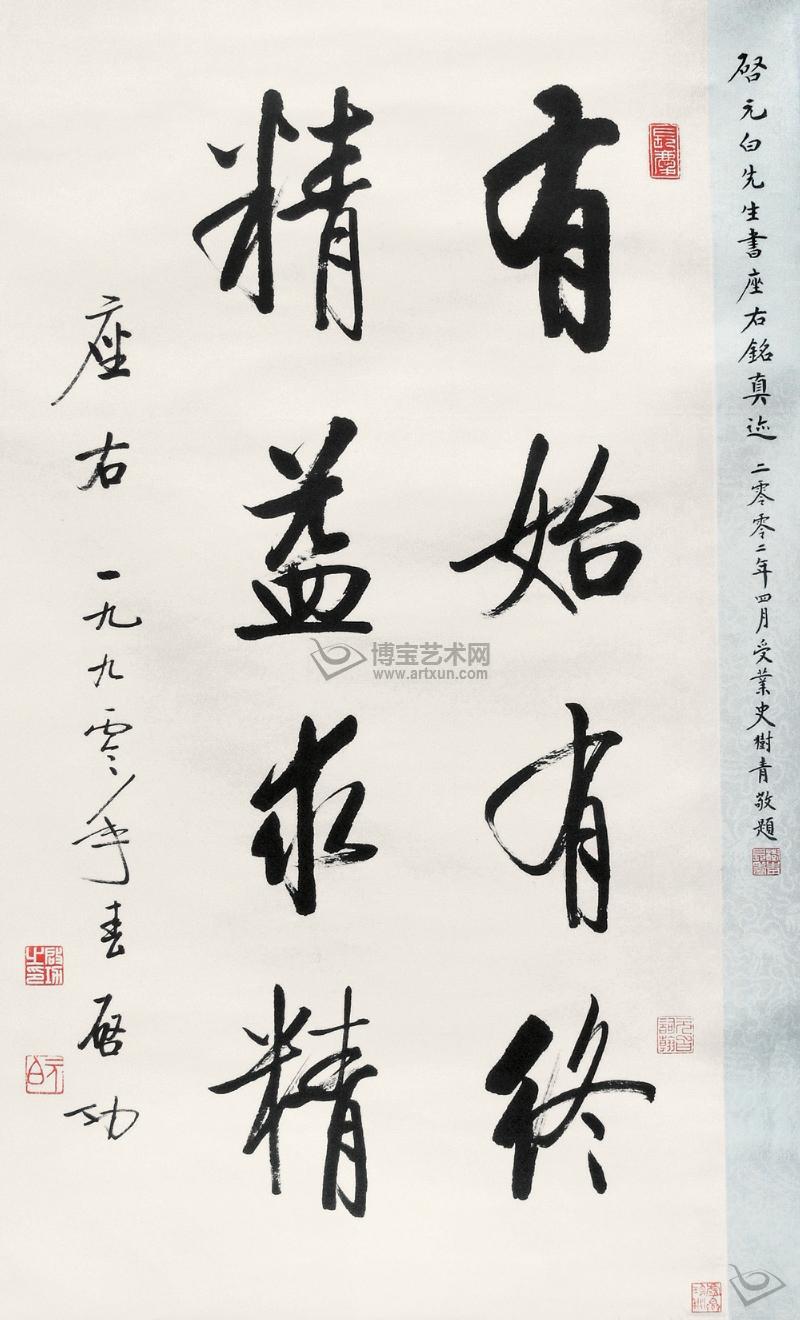 启元白先生書座右銘真迹 二零零二年四月受業史樹青敬題
有始有终
精益求精
座右 一九九零年春 启功
启功之印
元白
博宝艺术网
www.artxun.com